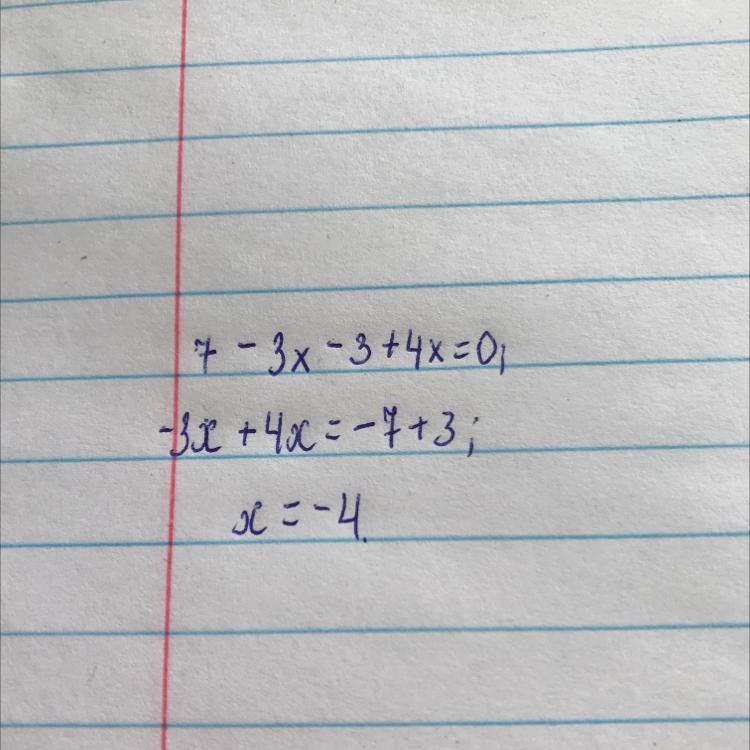 7 - 3x - 3 + 4x = 0;
-3x + 4x = -7 + 3;
x = -4.